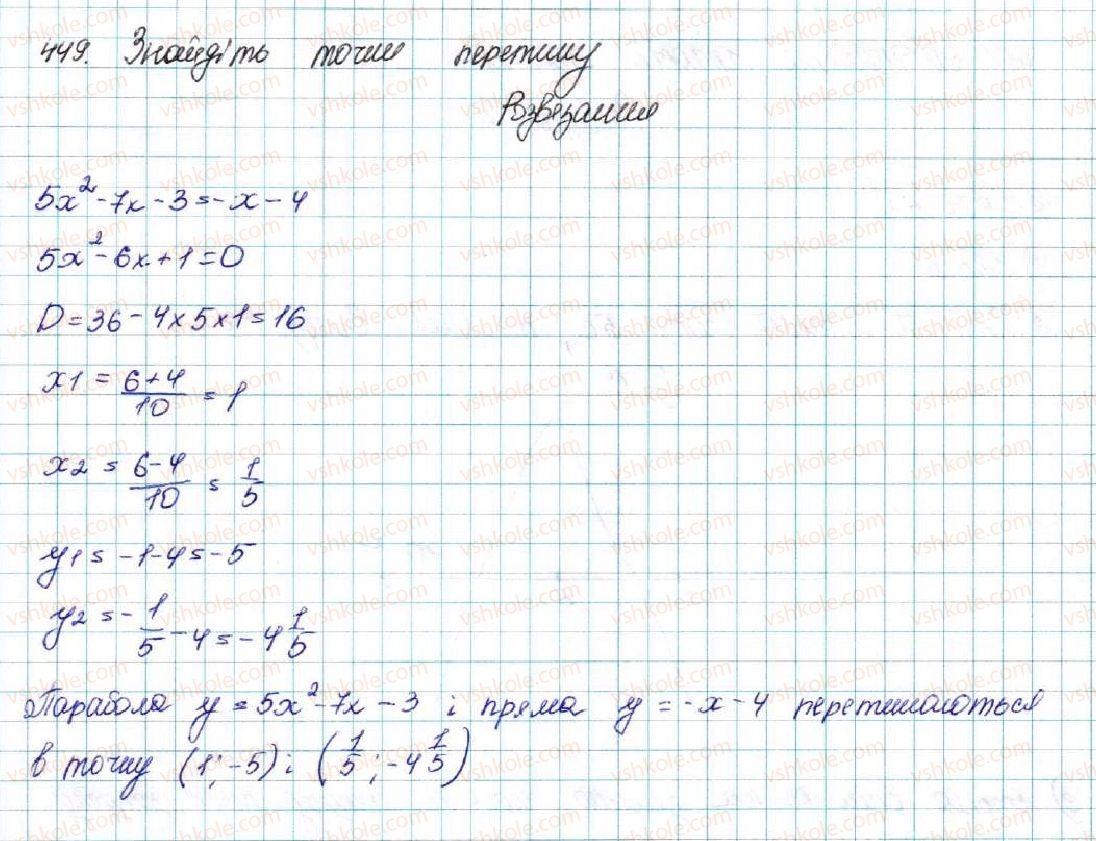 449. Знайдіть точки перетину
Розв'язання
5x² - 7x - 3 = -x - 4
5x² - 6x + 1 = 0
D = 36 - 4 × 5 × 1 = 16
x1 = (6+4)/10 = 1
x2 = (6-4)/10 = 1/5
y1 = -1-4 = -5
y2 = -1/5 - 4 = -4 1/5
Парабола y = 5x² - 7x - 3 і пряма y = -x - 4 перетинаються
в точку (1; -5) і (1/5; -4 1/5)